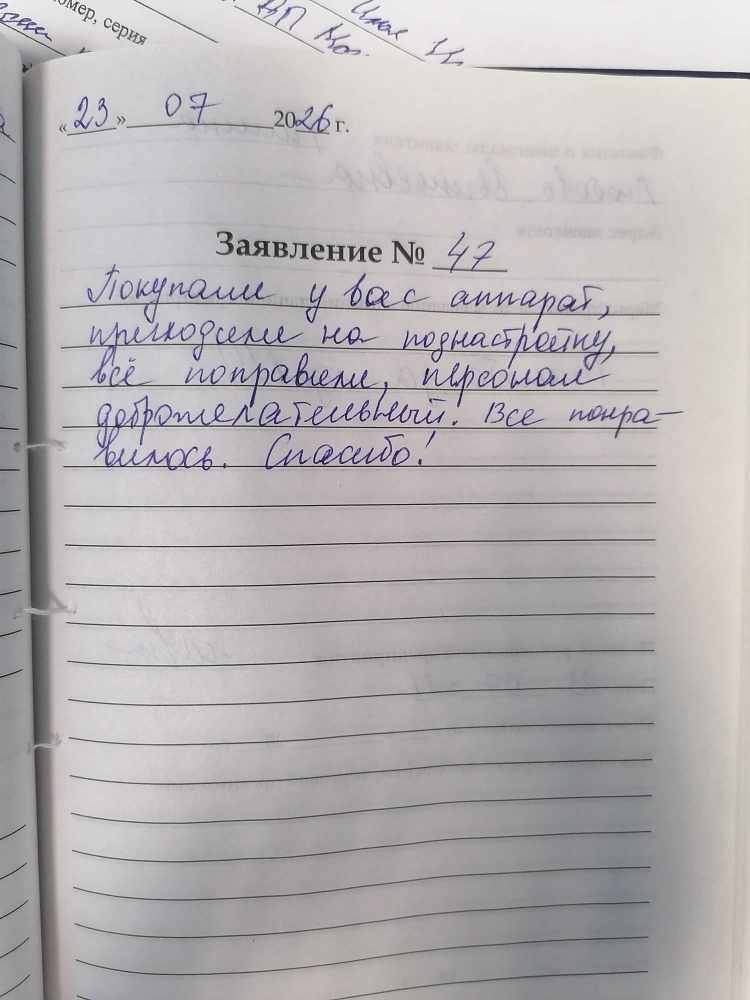 омер, серия
«23» 07 2026 г.
Заявление № 47
Покупали у вас аппарат,
приходили на поднастройку,
всё поправили, персонал
доброжелательный. Все понра-
вилось. Спасибо!